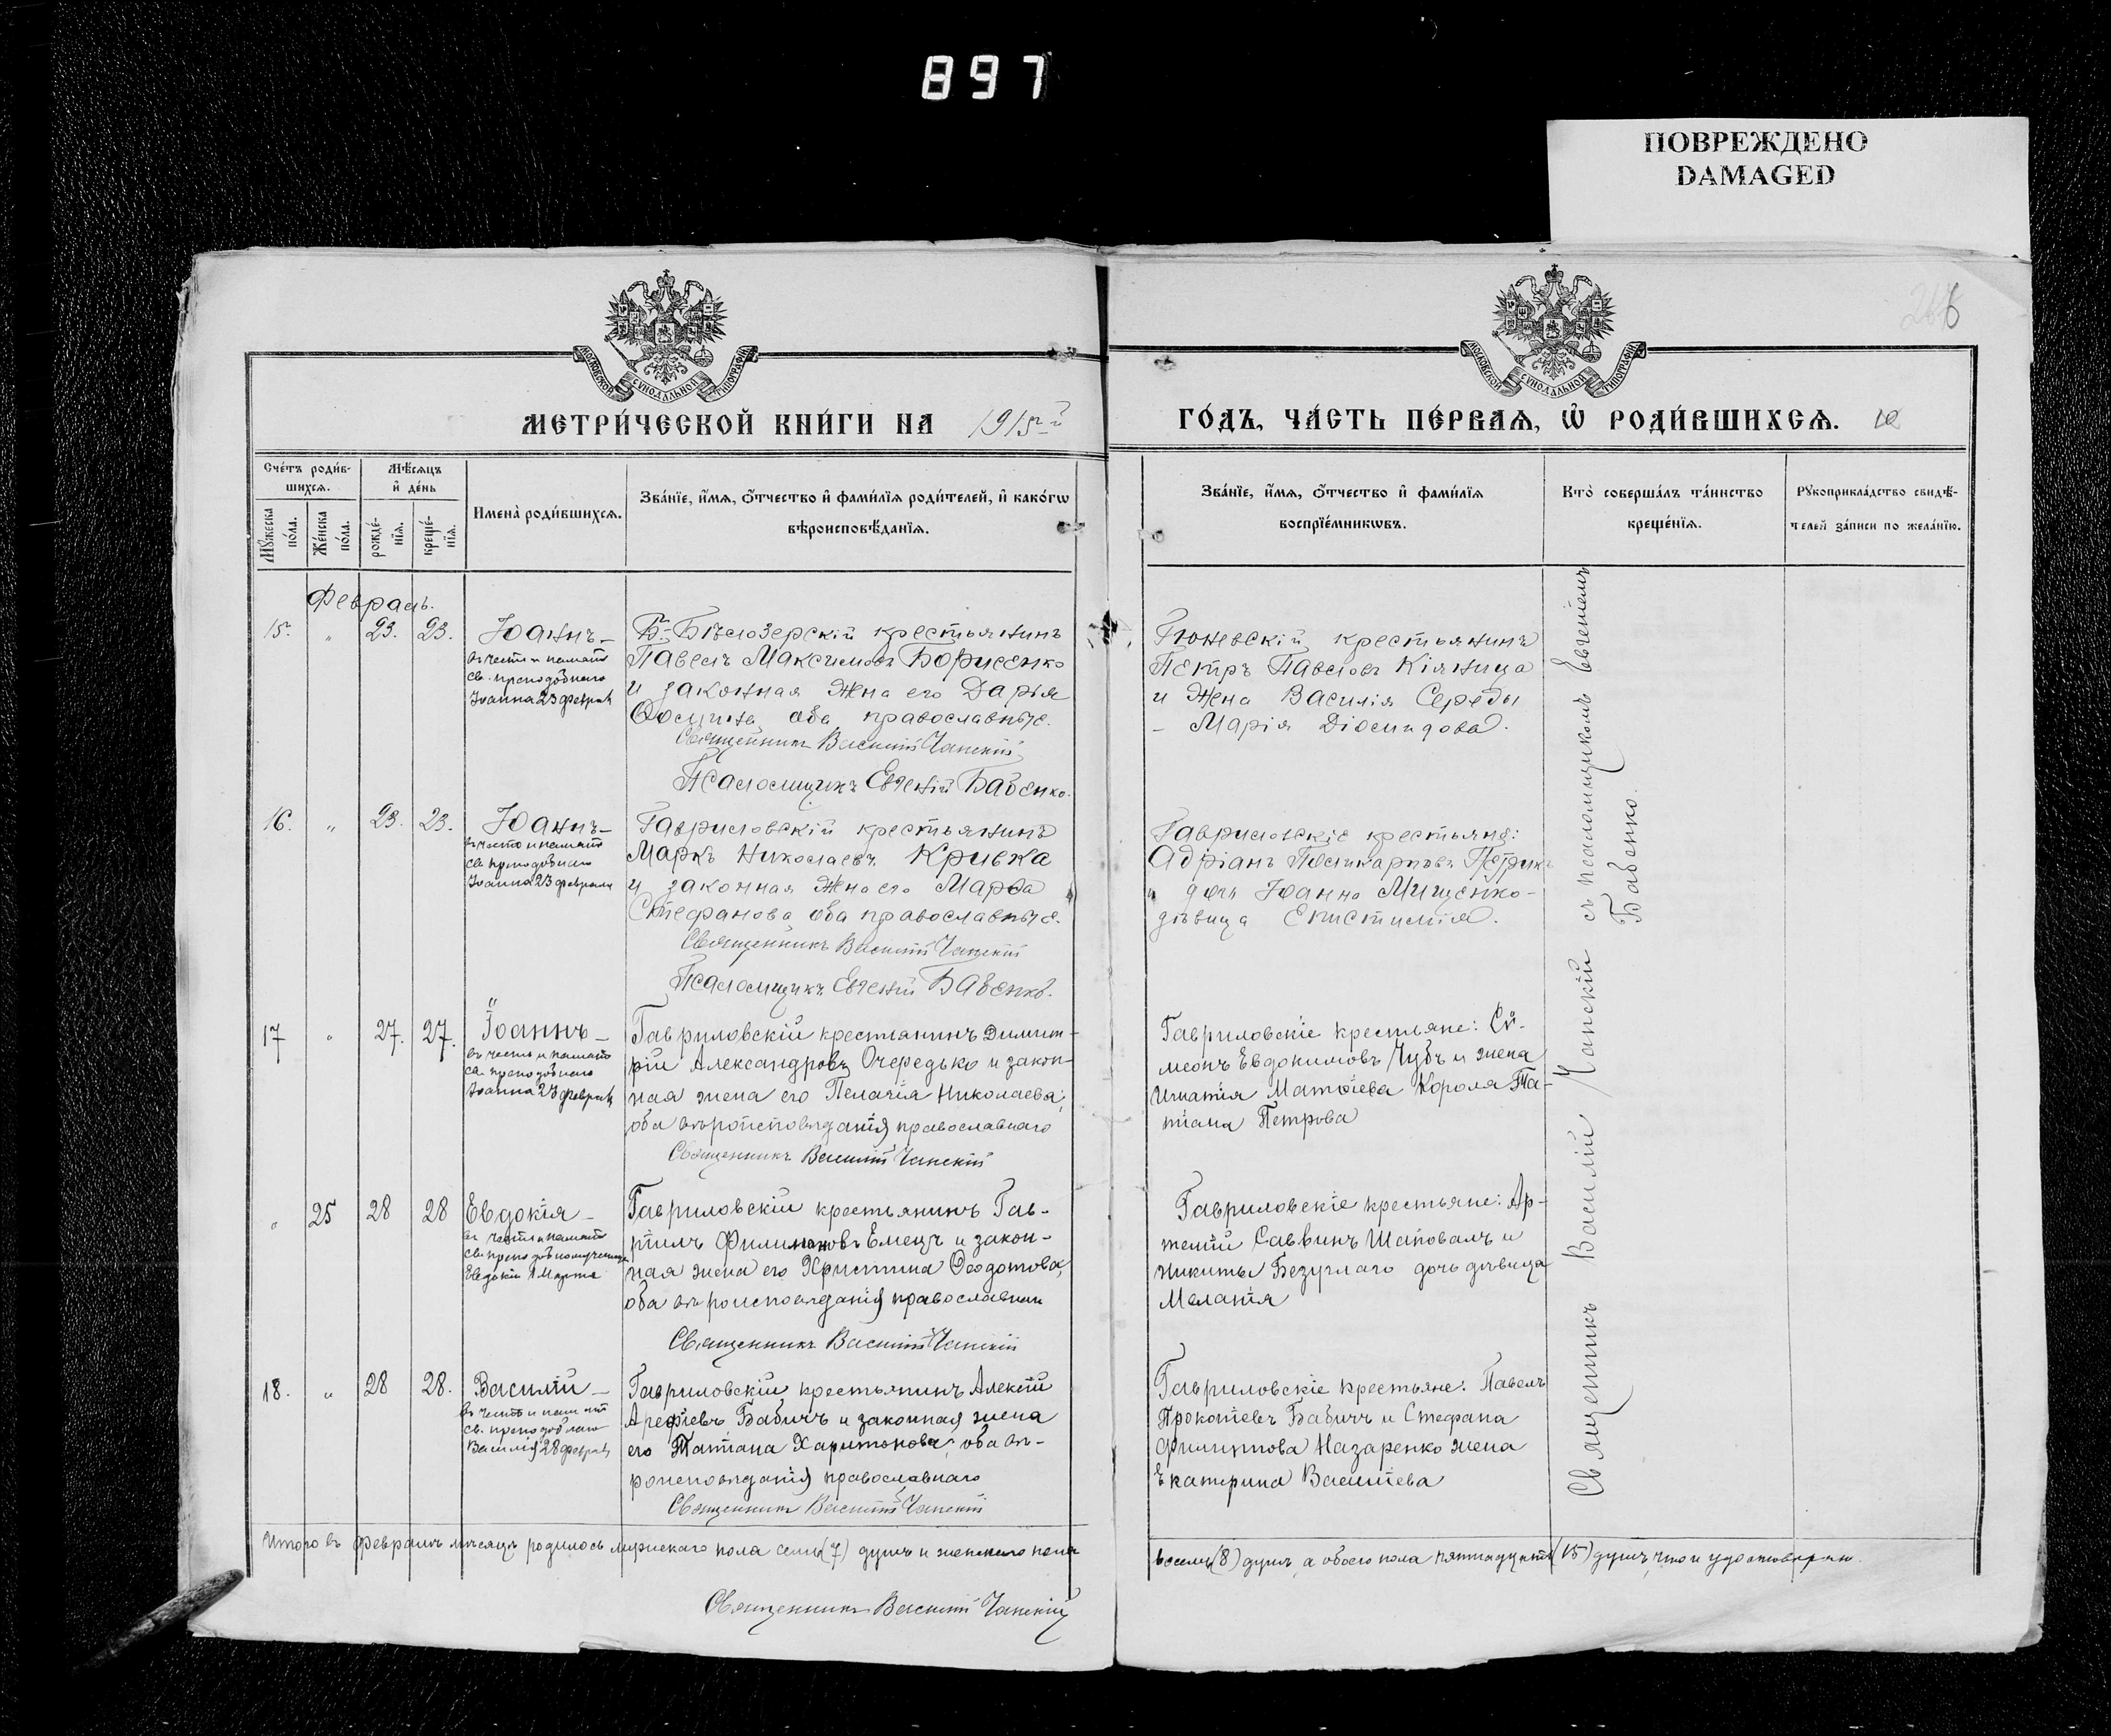 897
ПОВРЕЖДЕНО
DAMAGED
266
МОСКОВСКОЙ СѴНОДАЛЬНОЙ ТИПОГРАФІИ
МОСКОВСКОЙ СѴНОДАЛЬНОЙ ТИПОГРАФІИ
МЕТРИ́ЧЕСКОЙ КНИ́ГИ НА 1915й
ГО́ДЪ, ЧА́СТЬ ПЕ́РВАѦ, Ѡ РОДИ́ВШИХСѦ.
Сче́тъ роди́в-
шихсѧ.
Мѣ́сѧцъ
и̂ де́нь
Мꙋ́жеска
по́ла.
Же́нска
по́ла.
рожде́-
нїѧ.
креще́-
нїѧ.
Имена̀ роди́вшихсѧ.
Зва́нїе, и́мѧ, ѻ́тчество и̂ фами́лїѧ роди́телей, и̂ како́гѡ
вѣроисповѣ́данїѧ.
Зва́нїе, и́мѧ, ѻ́тчество и̂ фами́лїѧ
воспрїе́мникѡвъ.
Кто̀ соверша́лъ та́инство
креще́нїѧ.
Рꙋкоприкла́дство свидѣ́-
телей за́писи по жела́нїю.
Февраль.
15. " 23. 23. Іоаннъ –
въ честь и память
св. преподобнаго
Іоанна 23 февраля
Б.-Бѣлозерскій крестьянинъ
Павелъ Максимовъ Борисенко
и законная жена его Дарья
оба православные.
Священникъ Василій Чапскій
Псаломщикъ Евгеній Бабенко.
крестьянинъ
Петръ Павловъ Кіяница
и жена Василія Середы
– Марія Діомидова.
16. " 23. 23. Іоаннъ –
въ честь и память
св. преподобнаго
Іоанна 23 февраля
Гавриловскій крестьянинъ
Маркъ Николаевъ Кривка
и законная жена его Марѳа
Стефанова оба православные.
Священникъ Василій Чапскій
Псаломщикъ Евгеній Бабенко.
Гавриловскіе крестьяне:
Адріанъ Поликарповъ Петрикъ
и дочь Іоанна Мищенко –
дѣвица Епистимія.
17 " 27. 27. Іоаннъ –
въ честь и память
св. преподобнаго
Іоанна 23 февраля
Гавриловскій крестьянинъ Димит-
рій Александровъ Очередько и закон-
ная жена его Пелагія Николаева,
оба вѣроисповѣданія православнаго
Священникъ Василій Чапскій
Гавриловскіе крестьяне: Си-
меонъ Евдокимовъ Чубъ и жена
Игнатія Матѳіева Короля Та-
тіана Петрова
" 25 28 28 Евдокія –
въ честь и память
св. преподобномученицы
Евдокіи 1 Марта
Гавриловскій крестьянинъ Гав-
ріилъ Филимоновъ Емецъ и закон-
ная жена его Христина Ѳеодотова,
оба вѣроисповѣданія православнаго
Священникъ Василій Чапскій
Гавриловскіе крестьяне: Ар-
темій Саввинъ Шаповалъ и
Никиты Безуглаго дочь дѣвица
Меланія
18. " 28 28. Василій –
въ честь и память
св. преподобнаго
Василія 28 февраля
Гавриловскій крестьянинъ Алексій
Арефіевъ Бабичъ и законная жена
его Татіана Харитонова, оба вѣ-
роисповѣданія православнаго
Священникъ Василій Чапскій
Гавриловскіе крестьяне: Павелъ
Прокопіевъ Бабичъ и Стефана
Филиппова Назаренко жена
Екатерина Василіева
Священникъ Василій Чапскій съ псаломщикомъ Евгеніемъ
Бабенко.
Итого въ Февралѣ мѣсяцѣ родилось мужскаго пола семь (7) душъ и женскаго пола
восемь (8) душъ, а обоего пола пятнадцать (15) душъ, что и удостовѣряю.
Священникъ Василій Чапскій